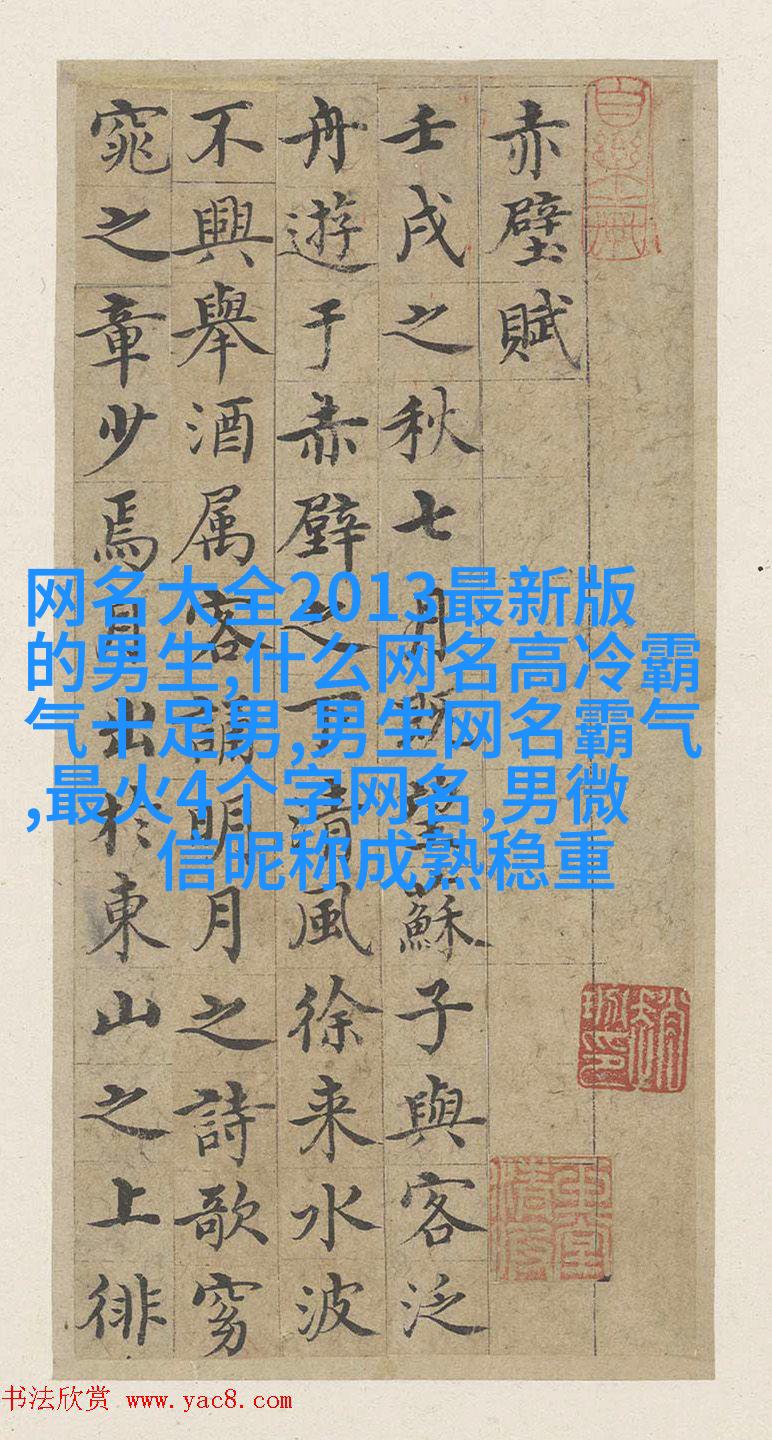 赤壁賦
壬戌之秋七月既望蘇子與客泛
舟遊于赤壁之下清風徐来水波
不興舉酒属客誦明月之詩歌窈
窕之章少焉月出於東山之上徘
网名大全2013最新版
的男生,什么网名高冷霸
气十足男,男生网名霸气
,最火4个字网名,男微
信昵称成熟稳重
书法欣赏 www.yac8.com